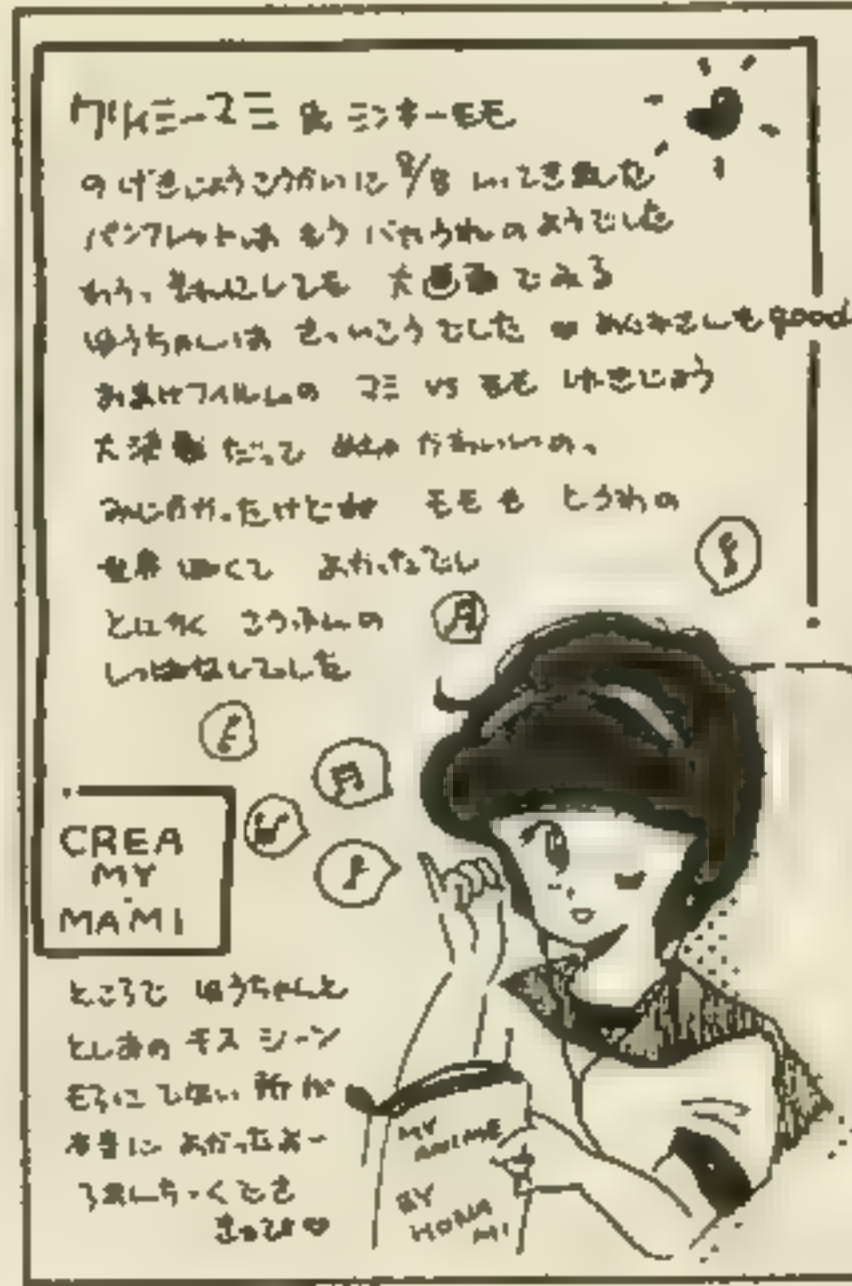 クリィミーマミ & ミンキーモモ
のげきじょうこうかいに 8/8 いってきました
パンフレットは もう バカうれ のようでした
それにしても 大 でみる
ゆうちゃんは さいこうでした めぐみさんもgood
おまけフィルムの マミ vs モモ げきじょう
大 だって めちゃ かわいいの。
みじかかったけど モモも とうわの
世界 よかったでし
とにかく こうふんの
しっぱなしでした
CREA
MY
MAMI
ところで ゆうちゃんと
としおの キス シーン
もろに でない 所が
本当に よかったよー
ろまんちっくとき
MY
ANIME
BY
HONA
MI